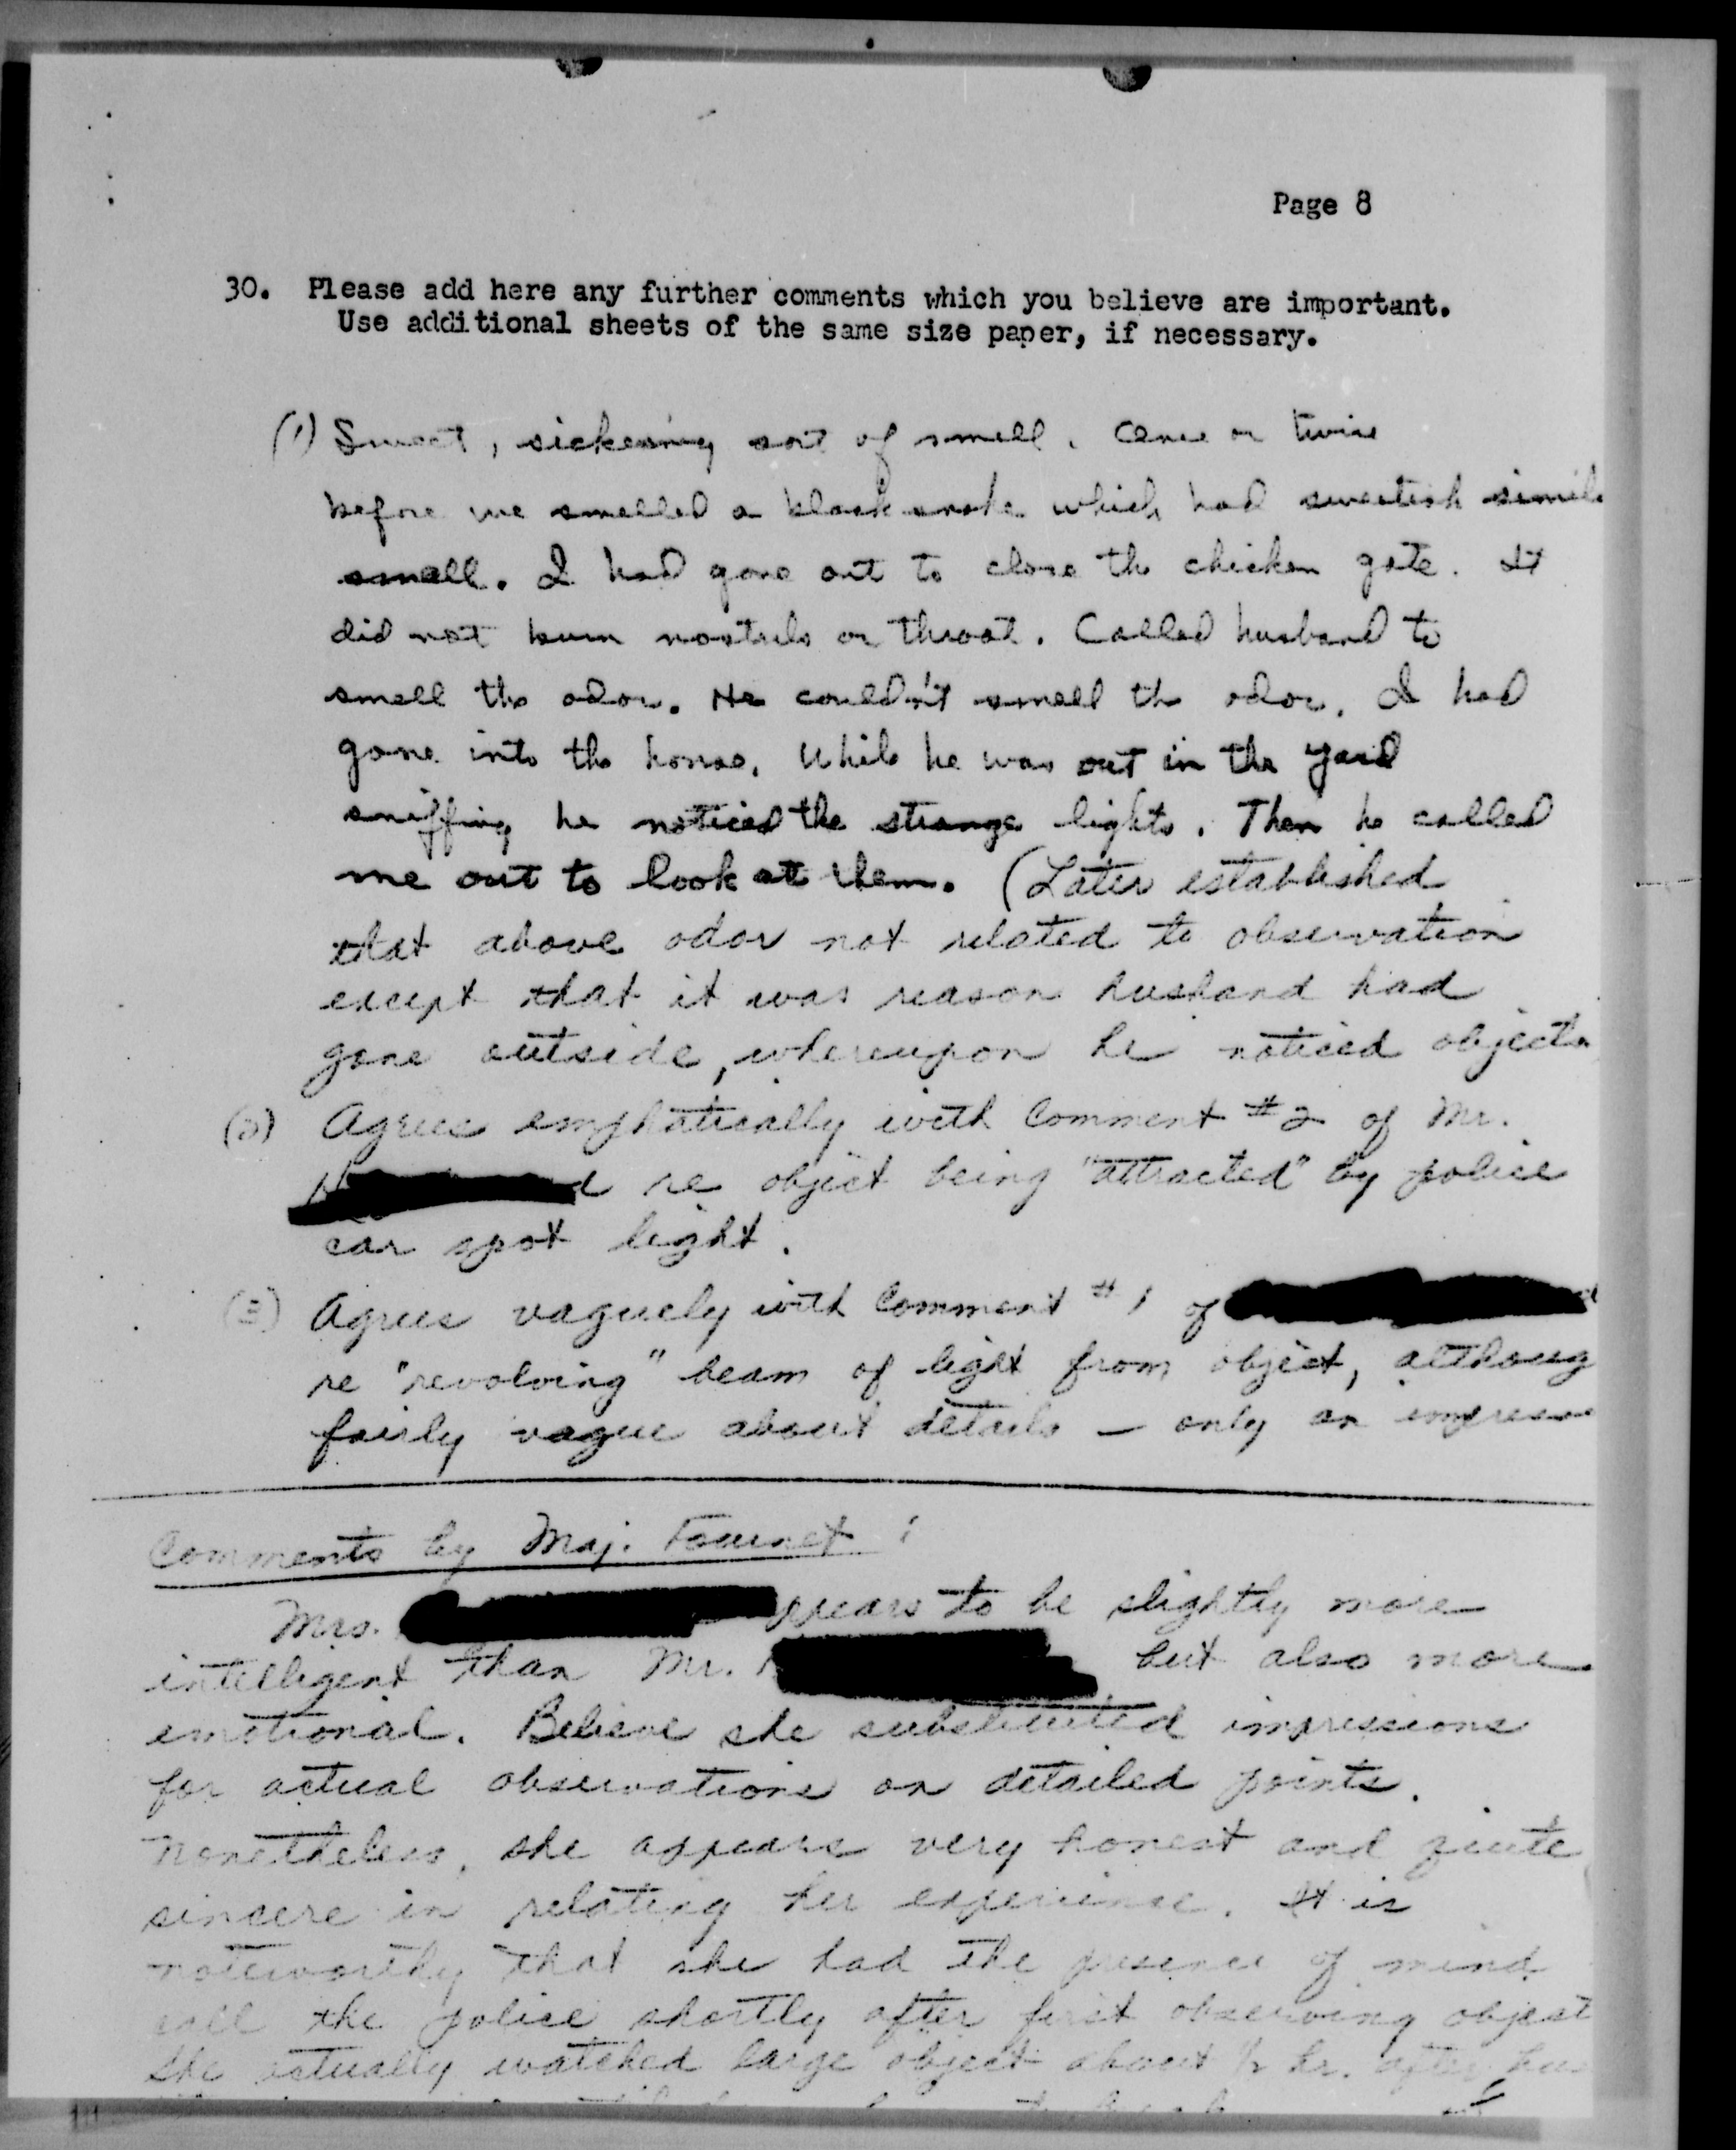 Page 8
30. Please add here any further comments which you believe are important.
Use additional sheets of the same size paper, if necessary.
(1) Sweet, sickening sort of smell. Once or twice
before we smelled a black snake which had sweetish
smell. I had gone out to close the chicken gate. It
did not burn nostrils or throat. Called husband to
smell the odor. He couldn't smell the odor. I had
gone into the house. While he was out in the yard
sniffing he noticed the strange lights. Then he called
me out to look at them. (Later established
that above odor not related to observation
except that it was reason husband had
gone outside, whereupon he noticed objects
(2) Agrees emphatically with Comment #2 of Mr.
re object being "attracted" by police
car spot light.
(3) Agrees vaguely with Comment #1 of
re "revolving" beam of light from object, althoug
fairly vague about details - only an
Comments by Maj. Fournet:
Mrs. ppears to be slightly more
intelligent than Mr. but also more
emotional. Believe she substituted impressions
for actual observations on detailed points.
Nonetheless, she appears very honest and quite
sincere in relating her experience. It is
noteworthy that she had the presence of mind
call the police shortly after first observing object
She actually watched large object about 1/2 hr. after